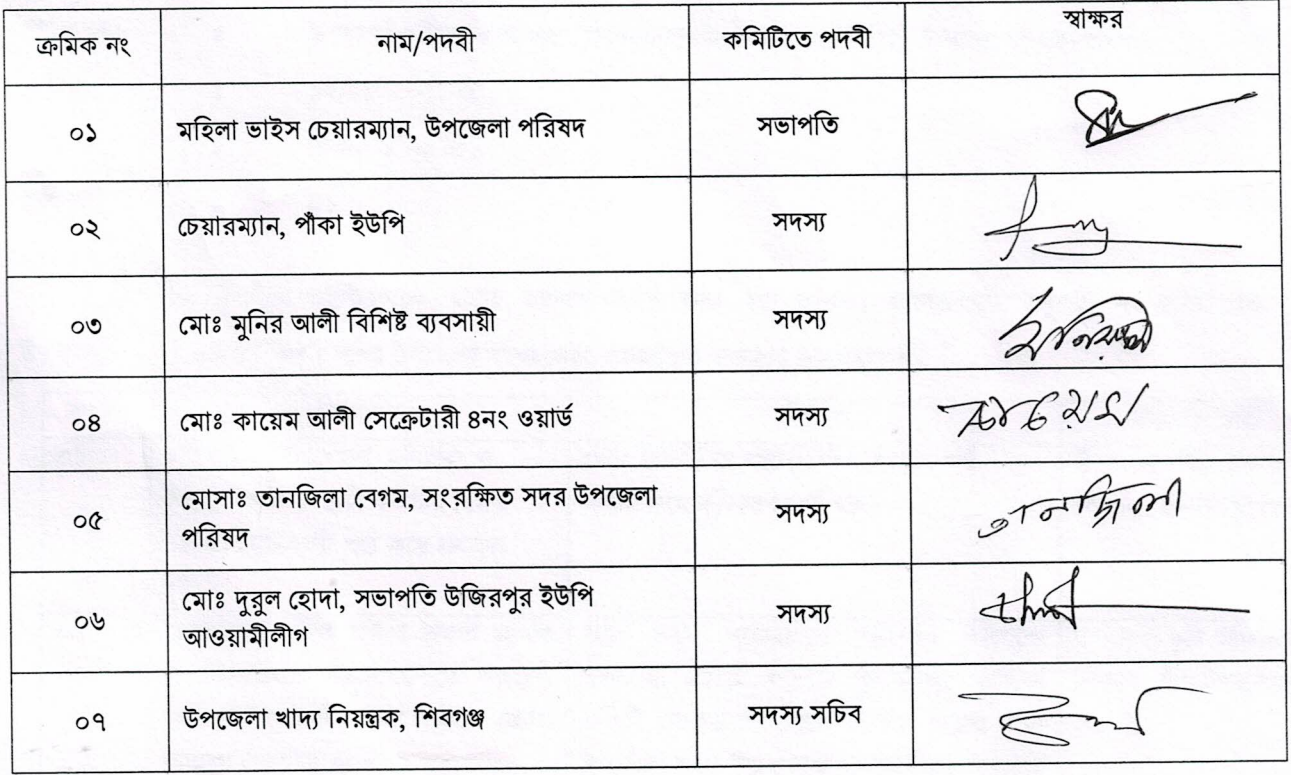 ক্রমিক নং নাম/পদবী কমিটিতে পদবী স্বাক্ষর
০১ মহিলা ভাইস চেয়ারম্যান, উপজেলা পরিষদ সভাপতি
০২ চেয়ারম্যান, পাঁকা ইউপি সদস্য
০৩ মোঃ মুনির আলী বিশিষ্ট ব্যবসায়ী সদস্য
০৪ মোঃ কায়েম আলী সেক্রেটারী ৪নং ওয়ার্ড সদস্য কায়েম
০৫ মোসাঃ তানজিলা বেগম, সংরক্ষিত সদর উপজেলা সদস্য তানজিলা
পরিষদ
০৬ মোঃ দুরুল হোদা, সভাপতি উজিরপুর ইউপি সদস্য
আওয়ামীলীগ
০৭ উপজেলা খাদ্য নিয়ন্ত্রক, শিবগঞ্জ সদস্য সচিব